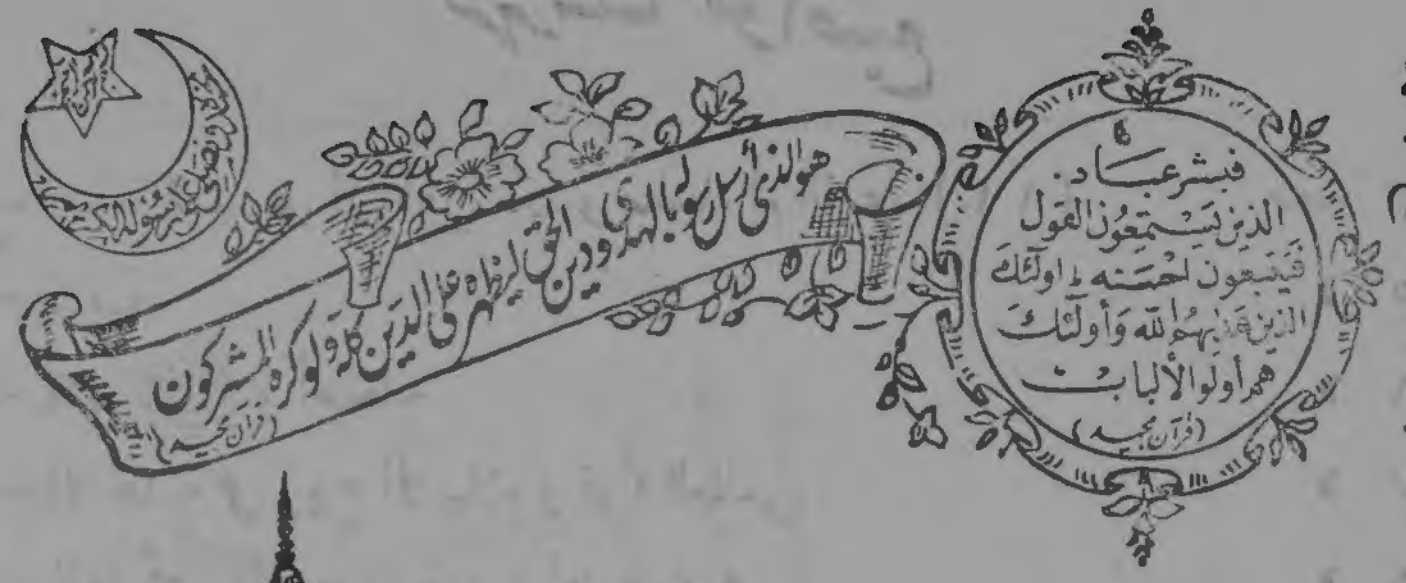 فبشر عباد.
الذين يستمعون القول
فيتبعون احسنه ط اولئك
الذين هدٰىهم الله وأولئك
هم أولوا الألباب
(قرآن مجيد)
هو الذى أرسل رسوله بالهدى ودين الحق ليظهره على الدين كله ولو كره المشركون
(قرآن مجيد)